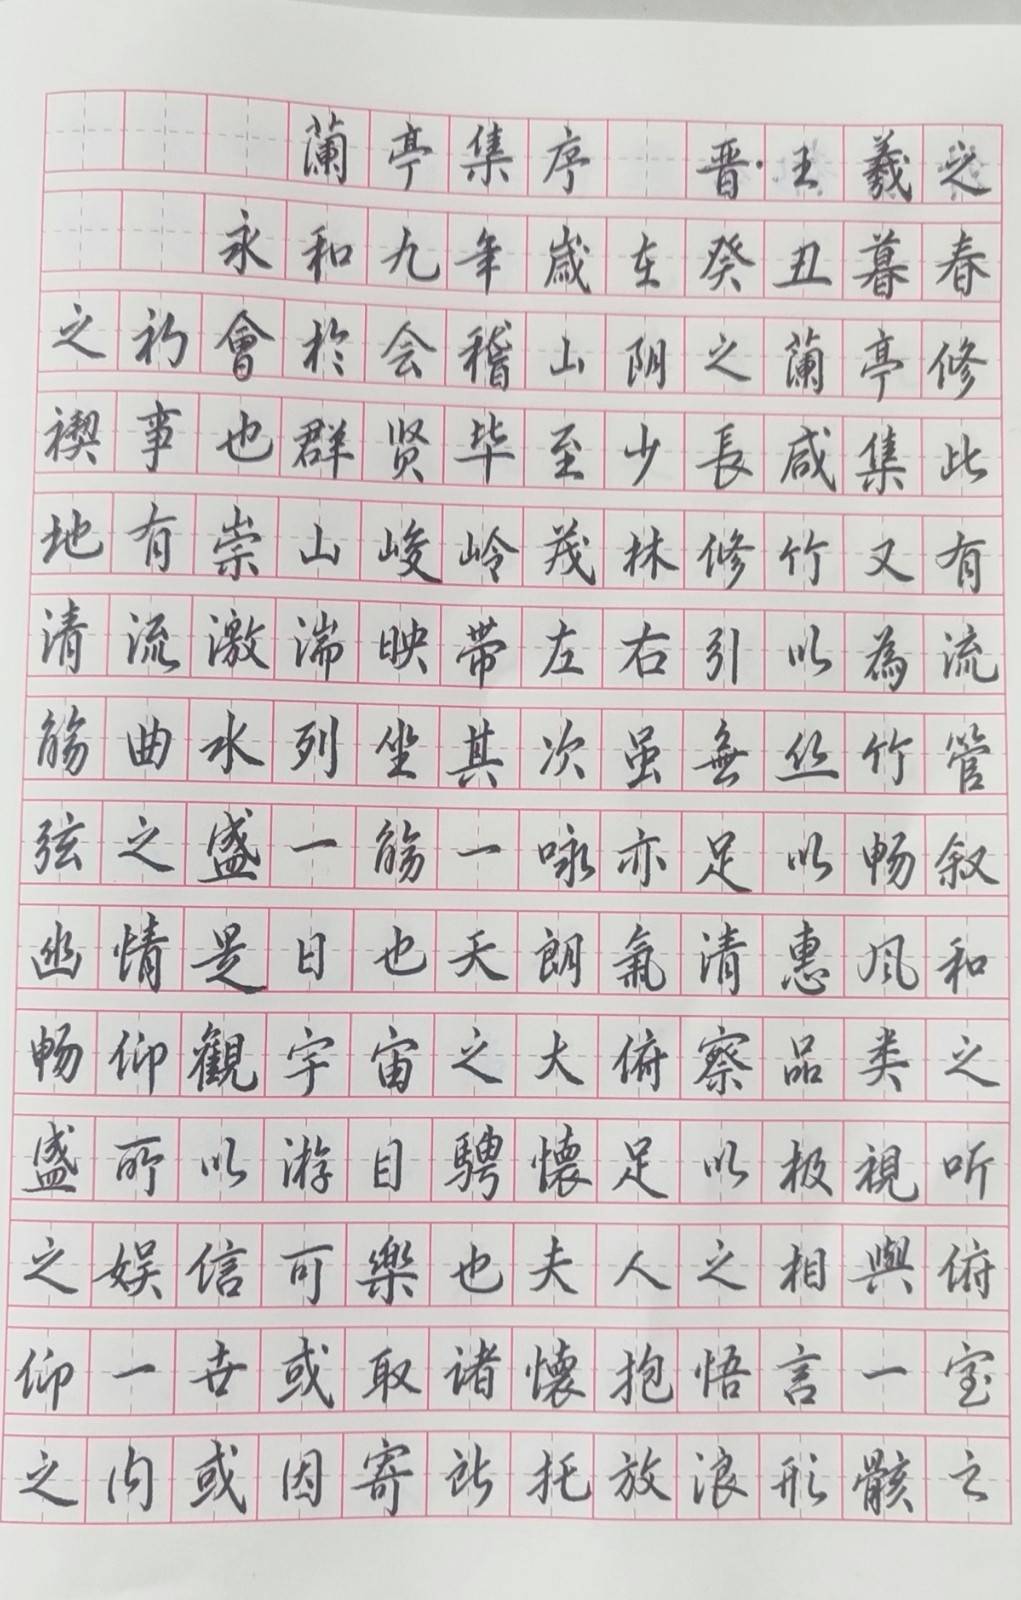 蘭亭集序 晋·王羲之
永和九年歲在癸丑暮春
之初會於会稽山阴之蘭亭修
禊事也群贤毕至少長咸集此
地有崇山峻岭茂林修竹又有
清流激湍映带左右引以為流
觞曲水列坐其次虽無丝竹管
弦之盛一觞一咏亦足以畅叙
幽情是日也天朗氣清惠风和
畅仰觀宇宙之大俯察品类之
盛所以游目骋懷足以极視听
之娱信可樂也夫人之相與俯
仰一世或取诸懷抱悟言一室
之内或因寄所托放浪形骸之